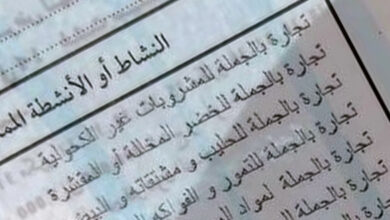 النشاط أو الأنشطة
تجارة بالجملة للمشروبات غير الكحولية
تجارة بالجملة للخضر المخللة أو المقشرة
تجارة بالجملة للحليب و مشتقاته و
تجارة بالجملة للتمور و الفواكه
تجارة بالجملة لمواد
تجارة بالجملة